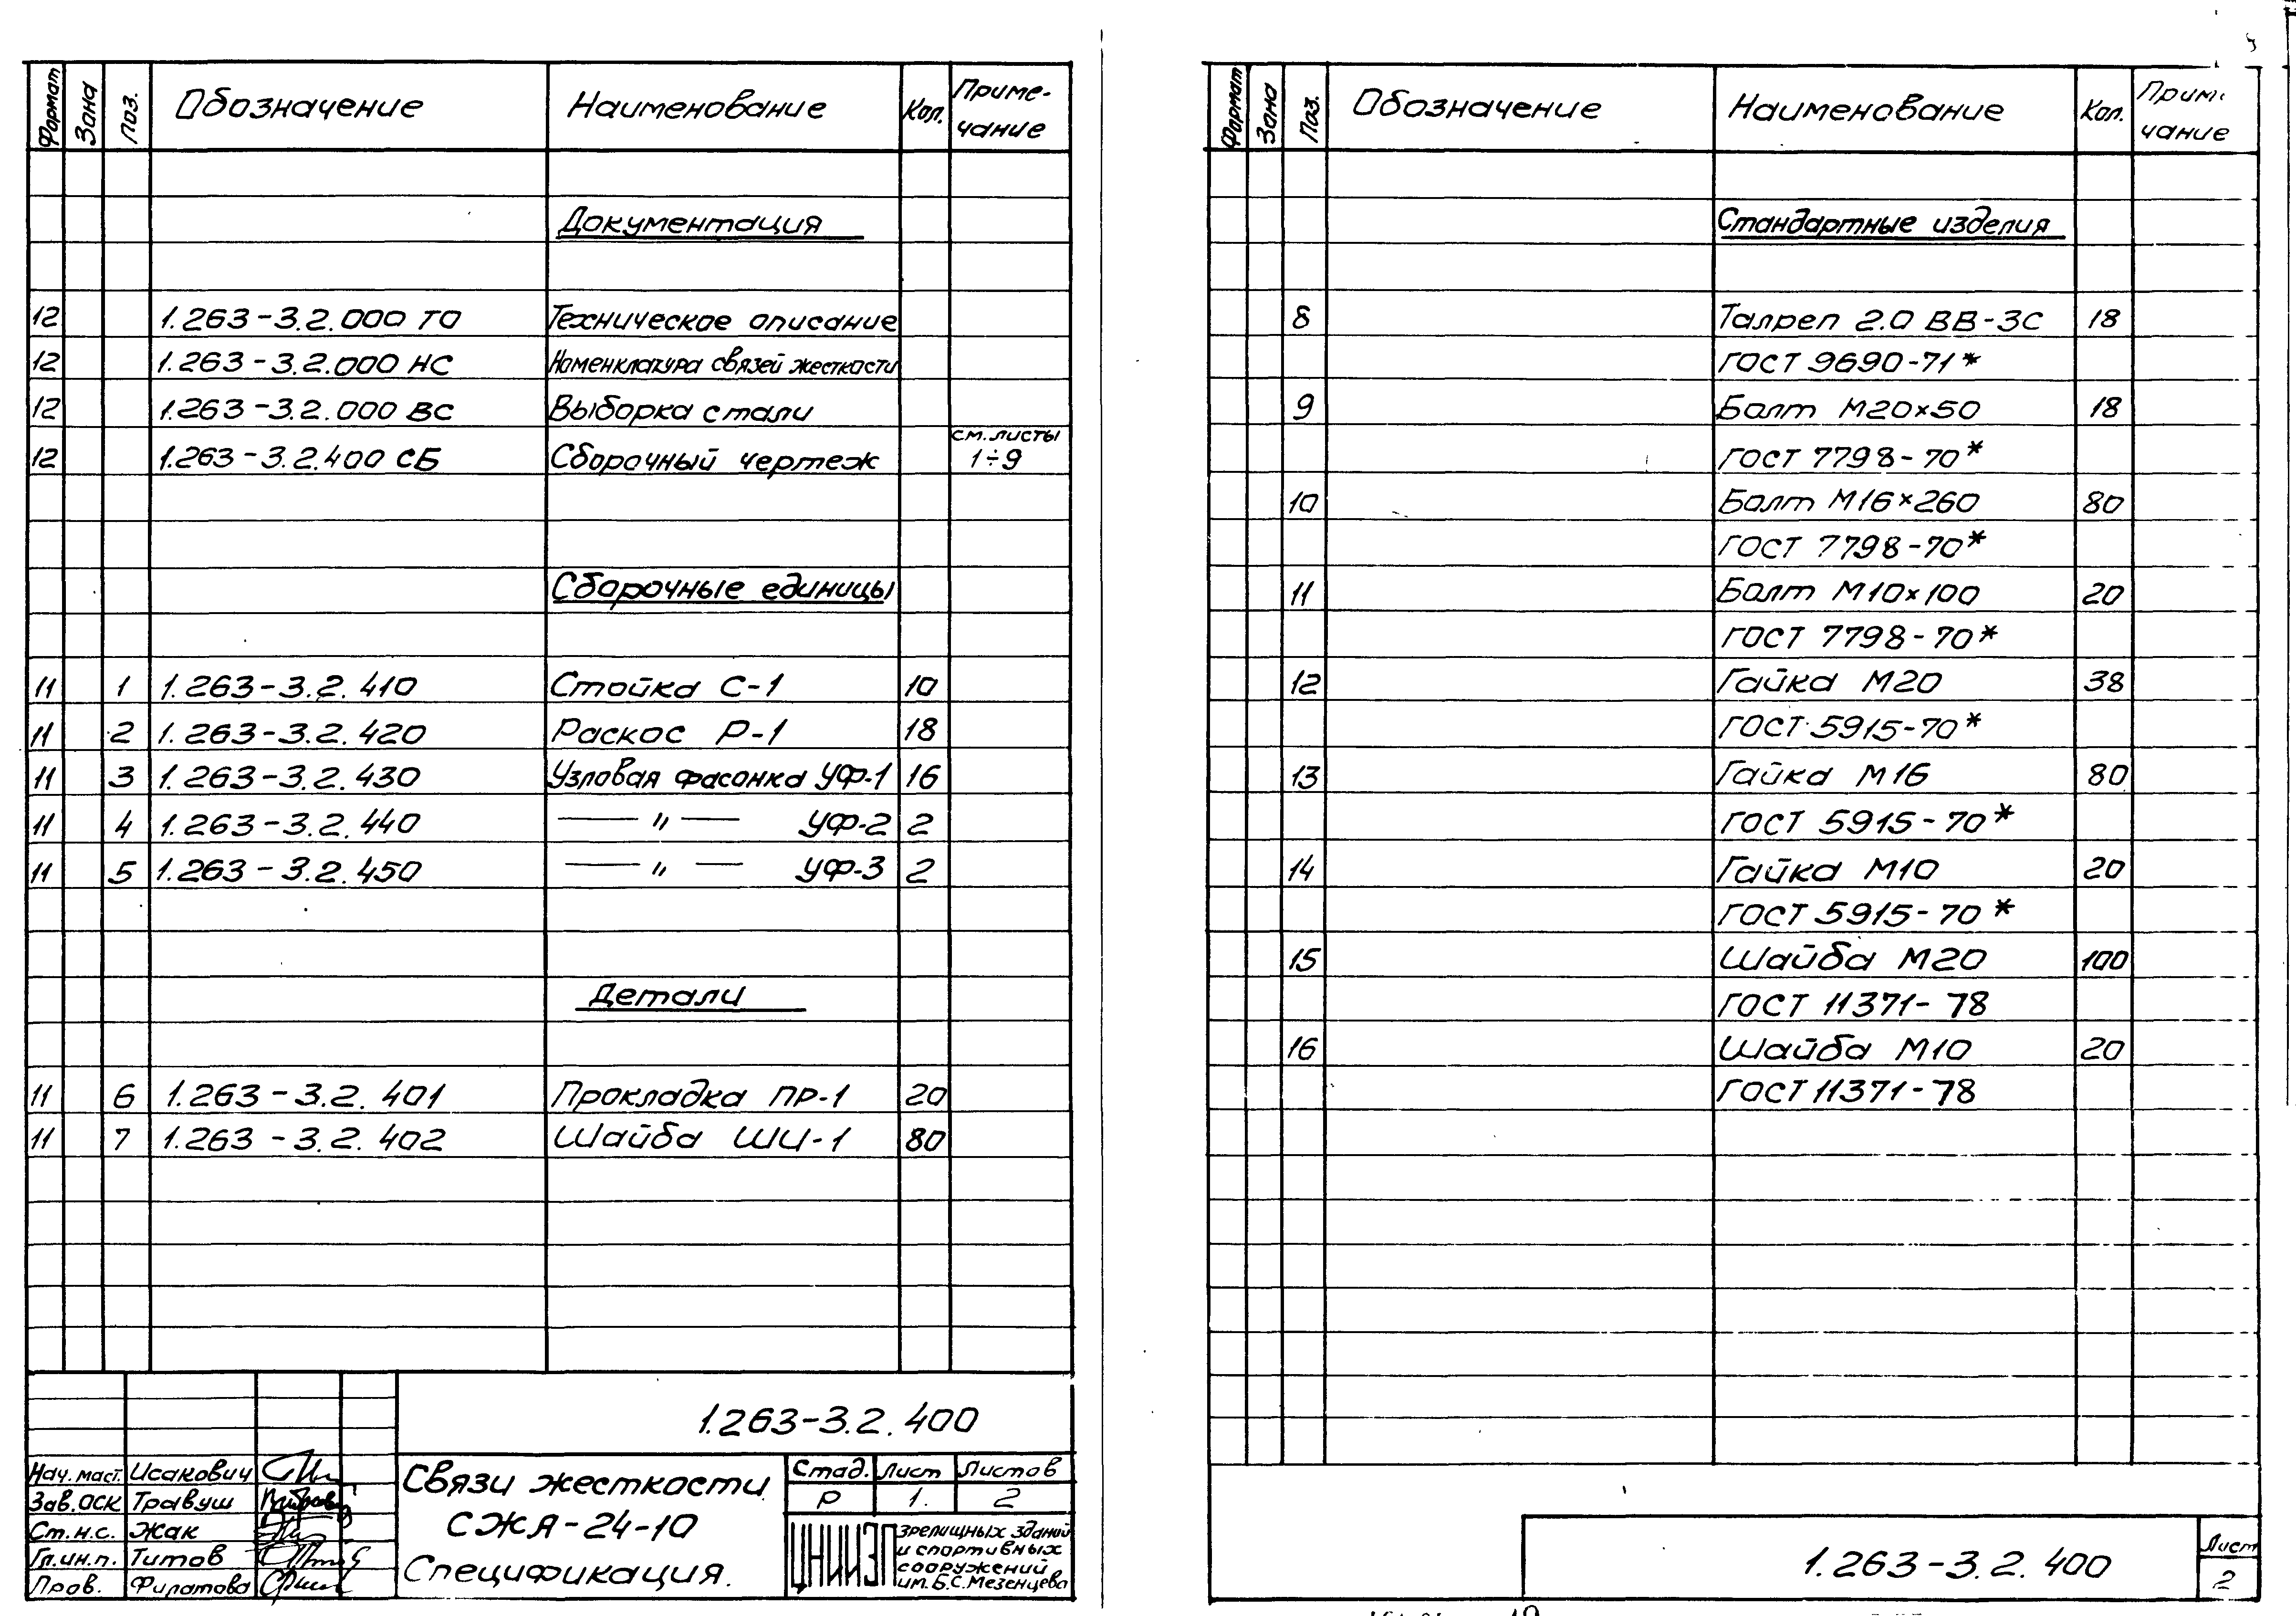 Формат Зона Поз. Обозначение Наименование Кол. Приме-
чание
Документация
12 1.263-3.2.000 ТО Техническое описание
12 1.263-3.2.000 НС Номенклатура связей жесткости
12 1.263-3.2.000 ВС Выборка стали
см. листы
12 1.263-3.2.400 СБ Сборочный чертеж 1÷9
Сборочные единицы
11 1 1.263-3.2.410 Стойка С-1 10
11 2 1.263-3.2.420 Раскос Р-1 18
11 3 1.263-3.2.430 Узловая фасонка УФ-1 16
11 4 1.263-3.2.440 — „ — УФ-2 2
11 5 1.263-3.2.450 — „ — УФ-3 2
Детали
11 6 1.263-3.2.401 Прокладка ПР-1 20
11 7 1.263-3.2.402 Шайба ШЦ-1 80
1.263-3.2.400
Нач. маст. Исакович
Зав. ОСК Травуш
Ст. н.с. Жак
Гл. ин. п. Титов
Пров. Филатова
Связи жесткости
СЖЯ-24-10
Спецификация.
Стад. Лист Листов
Р 1. 2
ЦНИИЭП
зрелищных зданий
и спортивных
сооружений
им. Б.С. Мезенцева
Формат Зона Поз. Обозначение Наименование Кол. Прим
чание
Стандартные изделия
8 Талреп 2.0 ВВ-3С 18
ГОСТ 9690-71*
9 Болт М20×50 18
ГОСТ 7798-70*
10 Болт М16×260 80
ГОСТ 7798-70*
11 Болт М10×100 20
ГОСТ 7798-70*
12 Гайка М20 38
ГОСТ 5915-70*
13 Гайка М16 80
ГОСТ 5915-70*
14 Гайка М10 20
ГОСТ 5915-70*
15 Шайба М20 100
ГОСТ 11371-78
16 Шайба М10 20
ГОСТ 11371-78
1.263-3.2.400
Лист
2